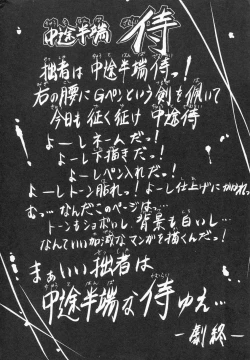 中途半端 侍
拙者は 中途半端侍っ!
右の腰にGペンという剣を佩いて
今日も征く征け 中途侍
よーしネームだっ!
よーし下描きだっ!
よーしペン入れだっ!
よーしトーン貼れ。!よーし仕上げに
むっ…なんだこのページは…
トーンもショボいし、背景も白いし…
なんていい加減なマンガを描くんだっ!
まぁいい拙者は
中途半端な侍ゆえ…
―劇終―